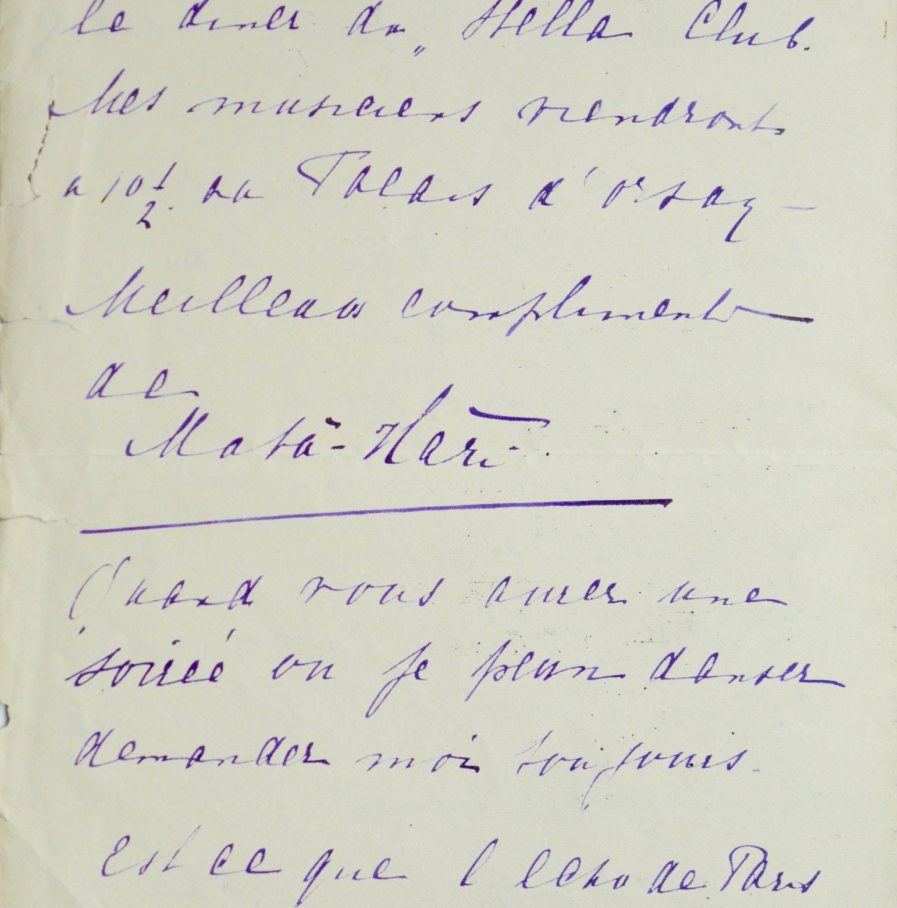 le diner du „ Stella Club.
Mes musiciens viendront
a 10 1/2. au Palais d'Orsay —
Meilleurs compliments
de
Mata-Hari
Quand vous aurez une
soireé ou je peux danser
demander moi toujours.
Est ce que l echo de Paris